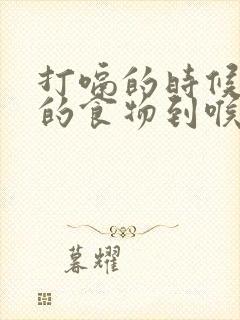 打嗝的時候
的食物到喉
暮耀